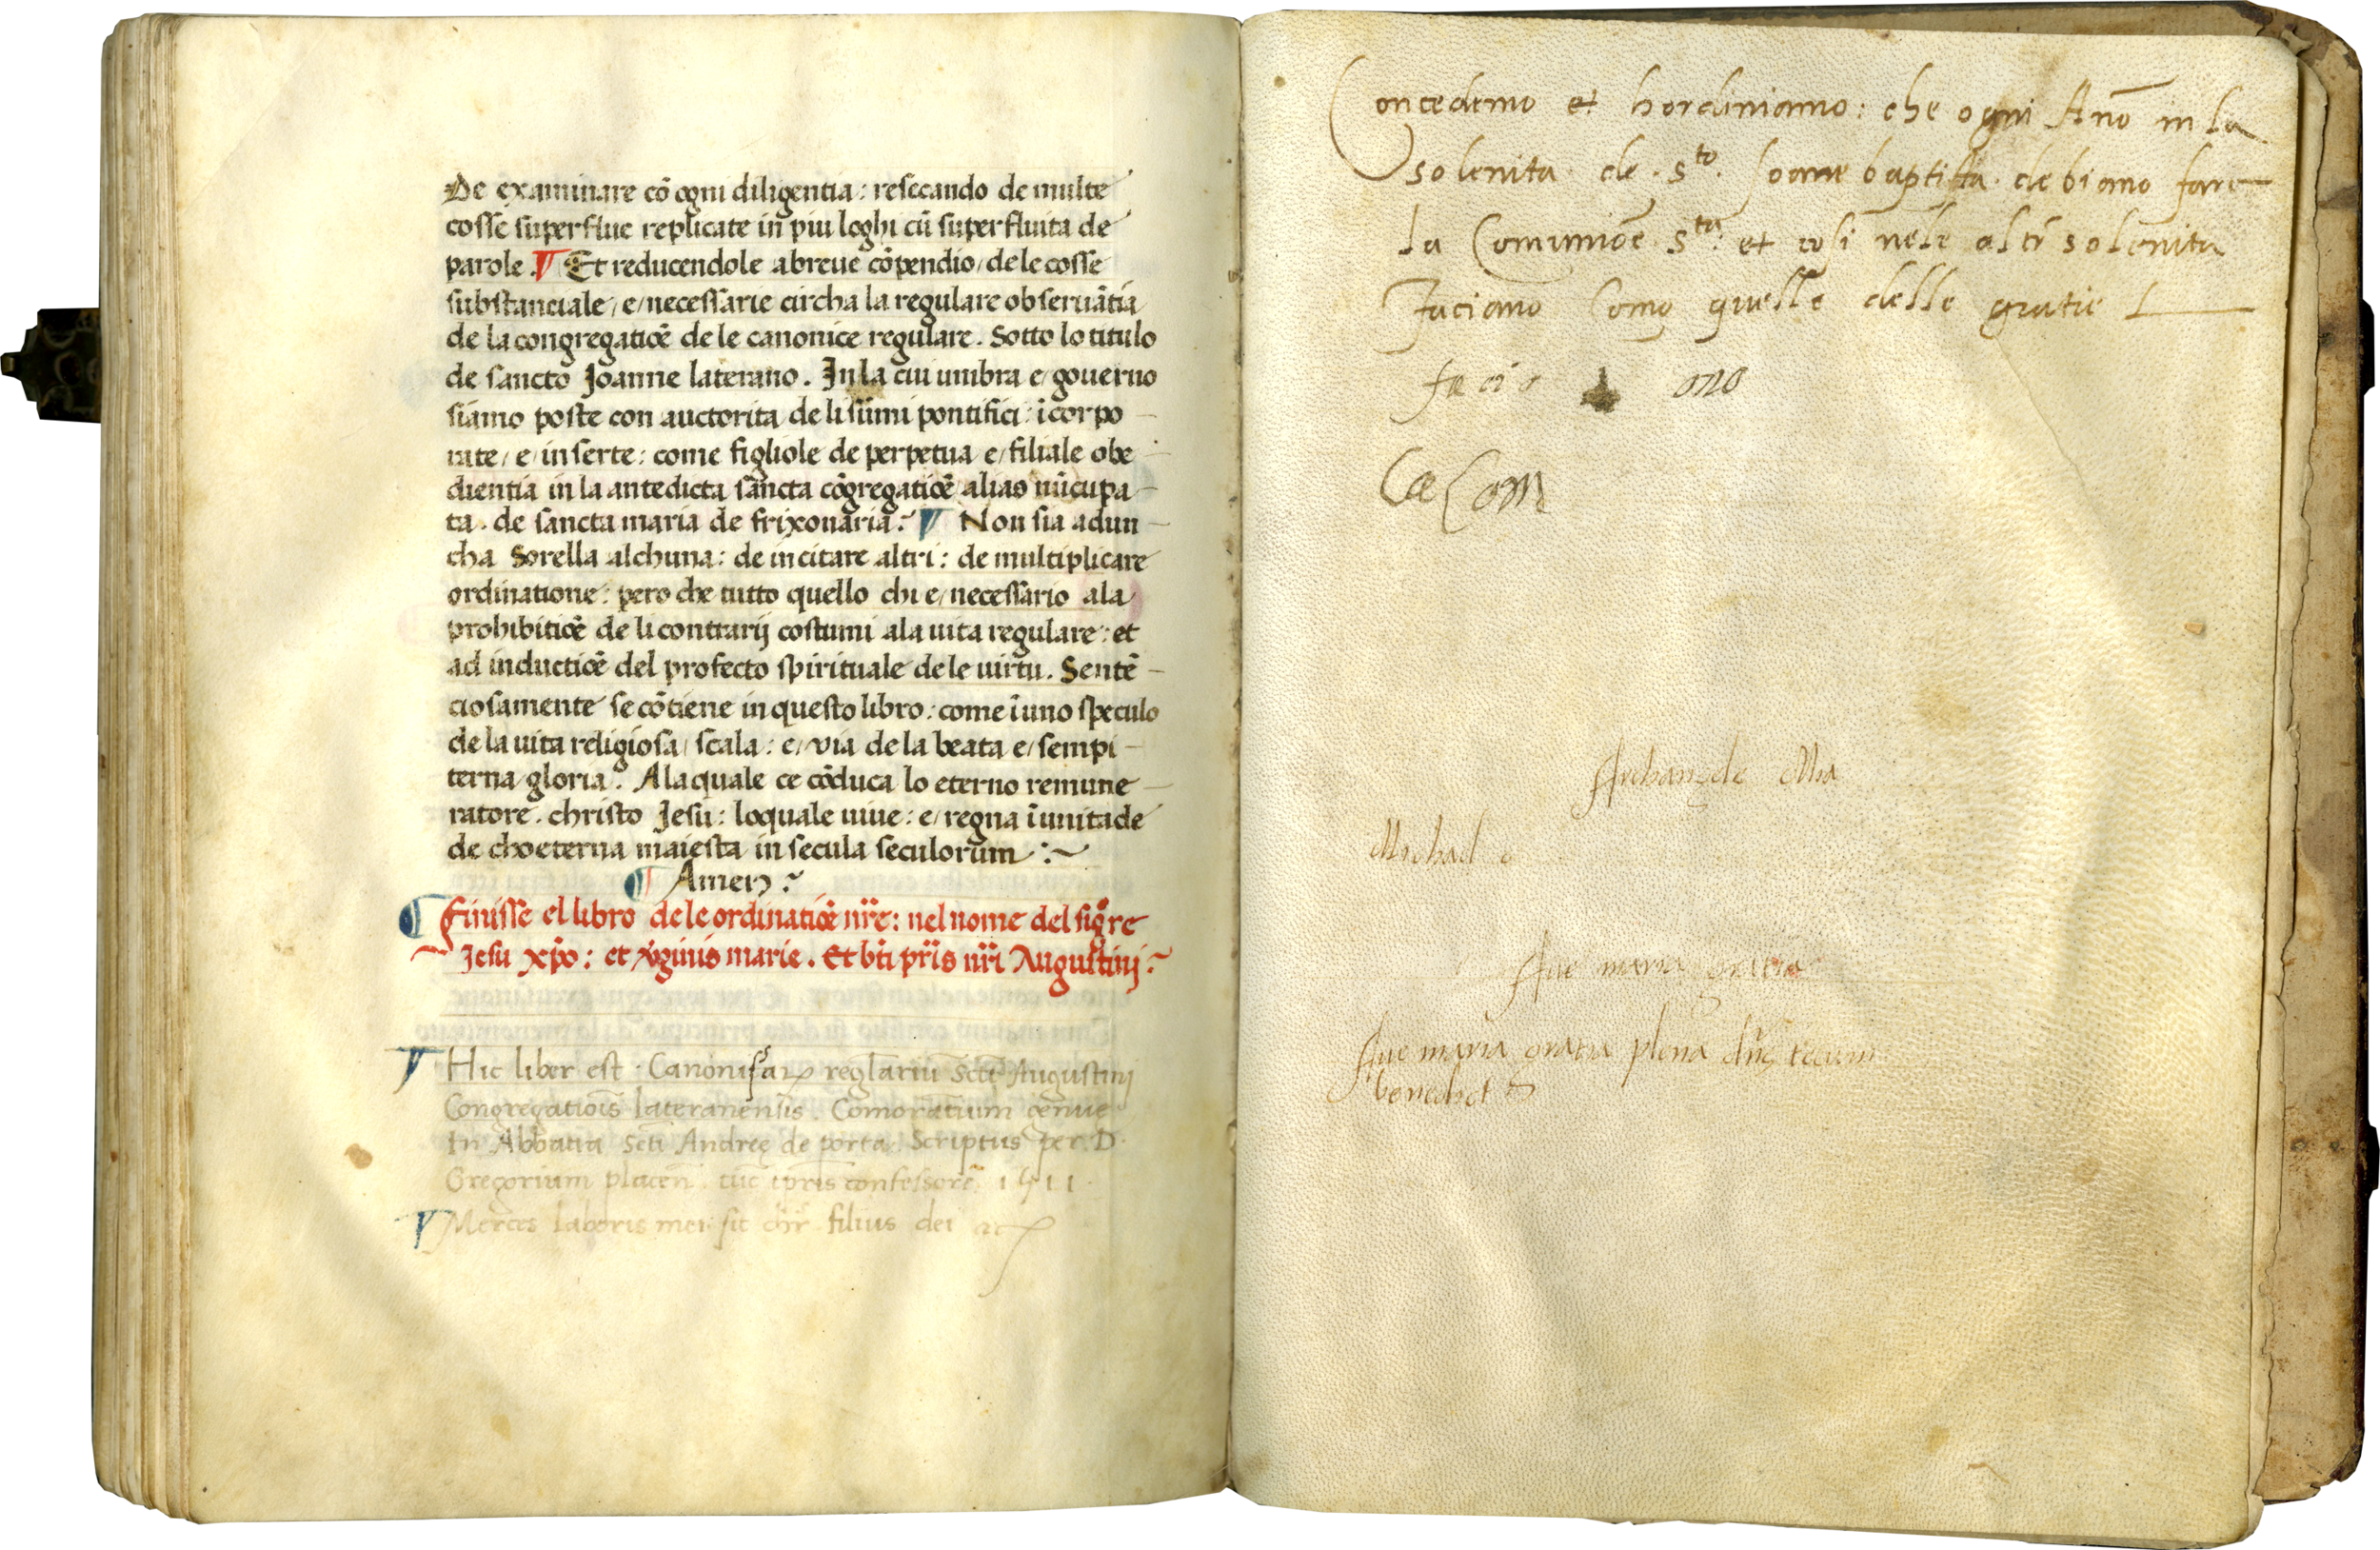 De examinare cō ogni diligentia: resecando de multe
cosse superflue replicate in piu loghi cū superfluita de
parole. ¶ Et reducendole a breue cōpendio/ de le cosse
substanciale/ e/ necessarie circha la regulare obseruātia
de la congregatiōe de le canonice regulare. Sotto lo titulo
de sancto Joanne laterano. In la cui umbra e/ gouerno
siamo poste con auctorita de li sūmi pontifici: īcorpo
rate/ e/ inserte: come figliole de perpetua e/ filiale obe
dientia in la antedicta sancta cōgregatiōe alias nūcupa
ta. de sancta maria de frixonaria. ¶ Non sia adun
cha Sorella alchuna: de incitare altri: de multiplicare
ordinatione: pero che tutto quello chi e/ necessario a la
prohibitiōe de li contrarij costumi a la uita regulare: et
ad inductiōe del profecto spirituale de le uirtu. Sentē
ciosamente se cōtiene in questo libro: come ī uno speculo
de la uita religiosa/ scala: e/ via de la beata e/ sempi
terna gloria. A la quale ce cōduca lo eterno remune
ratore. christo Jesu: lo quale uiue: e/ regna ī unitade
de choeterna maiesta in secula seculorum :~
¶ Amen.
¶ Finisse el libro de le ordinatiōe nr̄e: nel nome del sigre
Jesu xp̄o: et v̄ginis marie. Et bt̄i pr̄is nr̄i Augustini.
¶ Hic liber est. Canonisaꝝ reglariū Scti Augustinj
Congregatiois lateranensis. Comorātium Genue
In Abbatia Scti Andreę de porta. Scriptus per. D.
Gregorium placen̄. tūc ip̄ris confessorē. 1511
¶ Merces laboris mei sit chr̄ filius dei
Concedemo et hordiniamo: che ogni Ano in la
solenita de. Sto. Joane baptista. debiamo fare
la Comunioe. Sta: et cosi nele altr solenita
Faciamo Como quelle delle gratie
facio ono
Ca Com
Archangele Ma
Michael
Aue maria gratia
Aue maria gratia plena dn̄s tecum
benedict